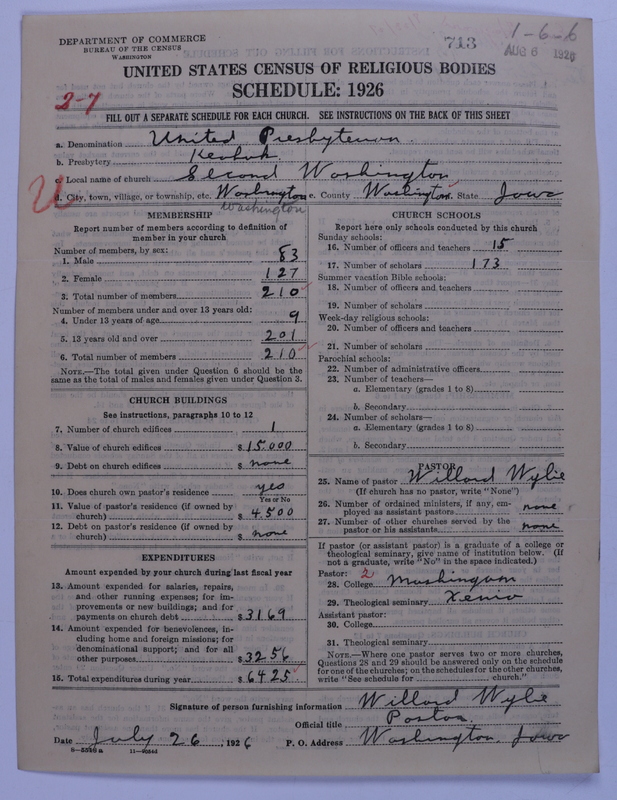 DEPARTMENT OF COMMERCE
BUREAU OF THE CENSUS
WASHINGTON
713
1-6-6
AUG 6 1926
UNITED STATES CENSUS OF RELIGIOUS BODIES
SCHEDULE: 1926
2-7
FILL OUT A SEPARATE SCHEDULE FOR EACH CHURCH. SEE INSTRUCTIONS ON THE BACK OF THIS SHEET
a. Denomination United Presbyterian
b. Presbytery Keokuk
c. Local name of church Second Washington
U
d. City, town, village, or township, etc. Washington e. County Washington State Iowa
Washington
MEMBERSHIP
Report number of members according to definition of
member in your church
Number of members, by sex:
1. Male 83
2. Female 127
3. Total number of members 210
Number of members under and over 13 years old:
4. Under 13 years of age 9
5. 13 years old and over 201
6. Total number of members 210
NOTE.—The total given under Question 6 should be
same as the total of males and females given under Question 3.
CHURCH BUILDINGS
See instructions, paragraphs 10 to 12
7. Number of church edifices 1
8. Value of church edifices $ 15,000
9. Debt on church edifices $ none
10. Does church own pastor's residence yes
Yes or No
11. Value of pastor's residence (if owned by
church) $ 4,500
12. Debt on pastor's residence (if owned by
church) $ none
EXPENDITURES
Amount expended by your church during last fiscal year
13. Amount expended for salaries, repairs,
and other running expenses; for im-
provements or new buildings; and for
payments on church debt $ 3169
14. Amount expended for benevolences, in-
cluding home and foreign missions; for
denominational support; and for all
other purposes $ 3256
15. Total expenditures during year $ 6425
CHURCH SCHOOLS
Report here only schools conducted by this church
Sunday schools:
16. Number of officers and teachers 15
17. Number of scholars 173
Summer vacation Bible schools:
18. Number of officers and teachers
19. Number of scholars
Week-day religious schools:
20. Number of officers and teachers
21. Number of scholars
Parochial schools:
22. Number of administrative officers
23. Number of teachers—
a. Elementary (grades 1 to 8)
b. Secondary
24. Number of scholars—
a. Elementary (grades 1 to 8)
b. Secondary
PASTOR
25. Name of pastor Willard Wylie
(If church has no pastor, write "None")
26. Number of ordained ministers, if any, em-
ployed as assistant pastors none
27. Number of other churches served by the
pastor or his assistants none
If pastor (or assistant pastor) is a graduate of a college or
theological seminary, give name of institution below. (If
not a graduate, write "No" in the space indicated.)
Pastor: 2
28. College Muskingum
29. Theological seminary Xenia
Assistant pastor:
30. College
31. Theological seminary
NOTE.—Where one pastor serves two or more churches,
Questions 28 and 29 should be answered only on the schedule
for one of the churches; on the schedules for the other churches,
write "See schedule for church."
Signature of person furnishing information Willard Wylie
Official title Pastor
Date July 26, 1926 P. O. Address Washington, Iowa
8-5548 a 11-9024d